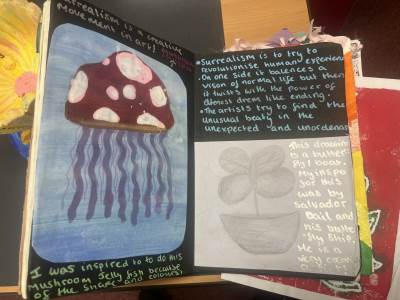 Surrealism is a creative
Movement in art!
Surrealism is to try to
revolutionise human experien
On one side it balences a
vison of normal life but then
it twists with the power of
almost dream like ending.
The artists try to find the
unusual beaty in the
unexpected and unordenas
This drawing
is a butter
fly boat.
My inspo
for this
was by
Salvador
Dail and
his butte
-fly Ship.
He is a
very
I was inspired to to do this
Mushroom Jelly fish because
of the Shape and colours!